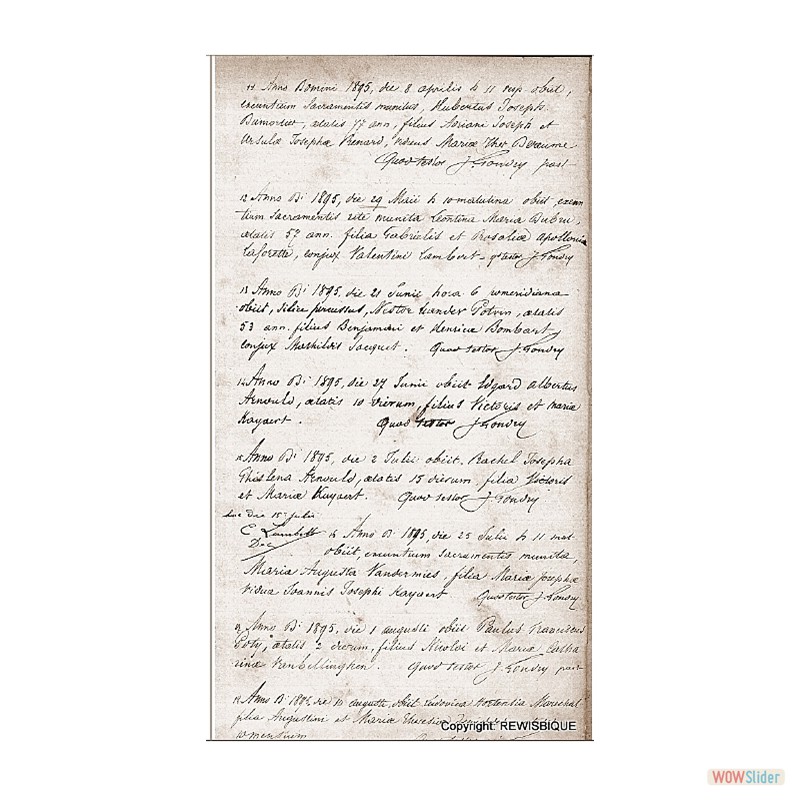 11 Anno Domini 1895, die 8 aprilis h 11 vesp. obiit,
exeuntium sacramentis munitus, Hubertus Joseph
Dumortier, ætatis 77 ann, filius Adriani Joseph et
Ursulæ Josephæ Renard, viduus Mariæ Ther
Quod testor J. Gondry past
12 Anno Di 1895, die 29 Maii h 10 matutina obiit, exeun
tium sacramentis rite munita Leontina Maria Dubru,
ætatis 57 ann. filia Gabrielis et Rosaliæ Apollonia
conjux Valentini Lambert - qd testor J. Gondry
13 Anno Di 1895, die 21 Junii hora 6 womeridiana
obiit, percussus, Nestor Leander Potvin, ætatis
53 ann. filius Benjamini et Henricæ Bombart,
conjux Mathildis Jacquet. Quod testor J. Gondry
14 Anno Di 1895, die 27 Junii obiit Edgard Albertus
Arnould, ætatis 10 dierum, filius Victoris et Maria
Kayaert. Quod testor J. Gondry
Anno Di 1895, die 2 Julii obiit. Rachel Josepha
Ghislena Arnould, ætatis 15 dierum. filia Victoris
et Mariæ Kayaert. Quod testor J. Gondry
hac die 15 Julii
C Lambott
Dec
16 Anno Di 1895, die 25 Julii h 11 mat
obiit, exeuntium sacramentis munita,
Maria Augusta Vandermies, filia Mariæ Josephæ
vidua Joannis Josephi Kayaert Quod testor J. Gondry
Anno Di 1895, die 1 augusti obiit Paulus Franciscus
Coty, ætatis 2 dierum, filius Nicolai et Mariæ Catha
rinæ Vanbellinghen. Quod testor J. Gondry past
Anno Di 1895, die augusti, obiit Ludovica Hortentia Marechal
filia Augustini et Mariæ
mensium
Copyright: REWISBIQUE
WOWSlider